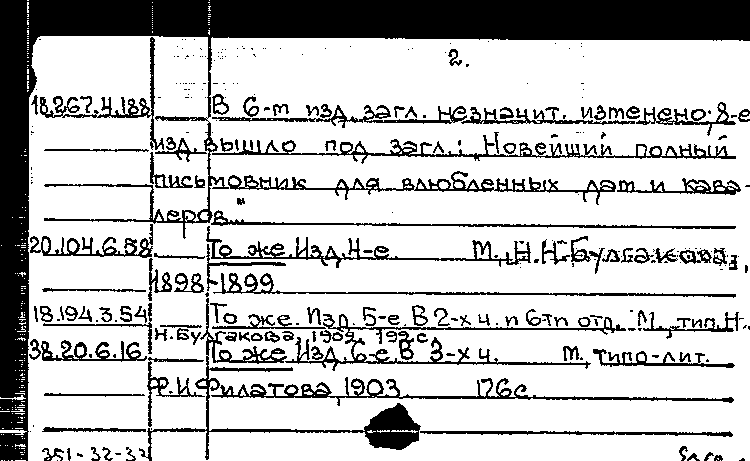 2.
18.267.4.188 В 6-м изд. загл. незначит. изменено; 8-е
изд. вышло под загл.: „Новейший полный
письмовник для влюбленных дам и кава-
леров..."
20.104.6.58 То же. Изд. 4-е. М., Н.Н. Булгакова,
1898-1899.
18.194.3.54 То же. Изд. 5-е. В 2-х ч. и 6-ти отд. М., тип. Н.
Н. Булгакова, 192 с.
38.20.6.16 То же. Изд. 6-е. В 3-х ч. М., типо-лит.
Ф.И. Филатова, 1903. 176 с.
351-32-